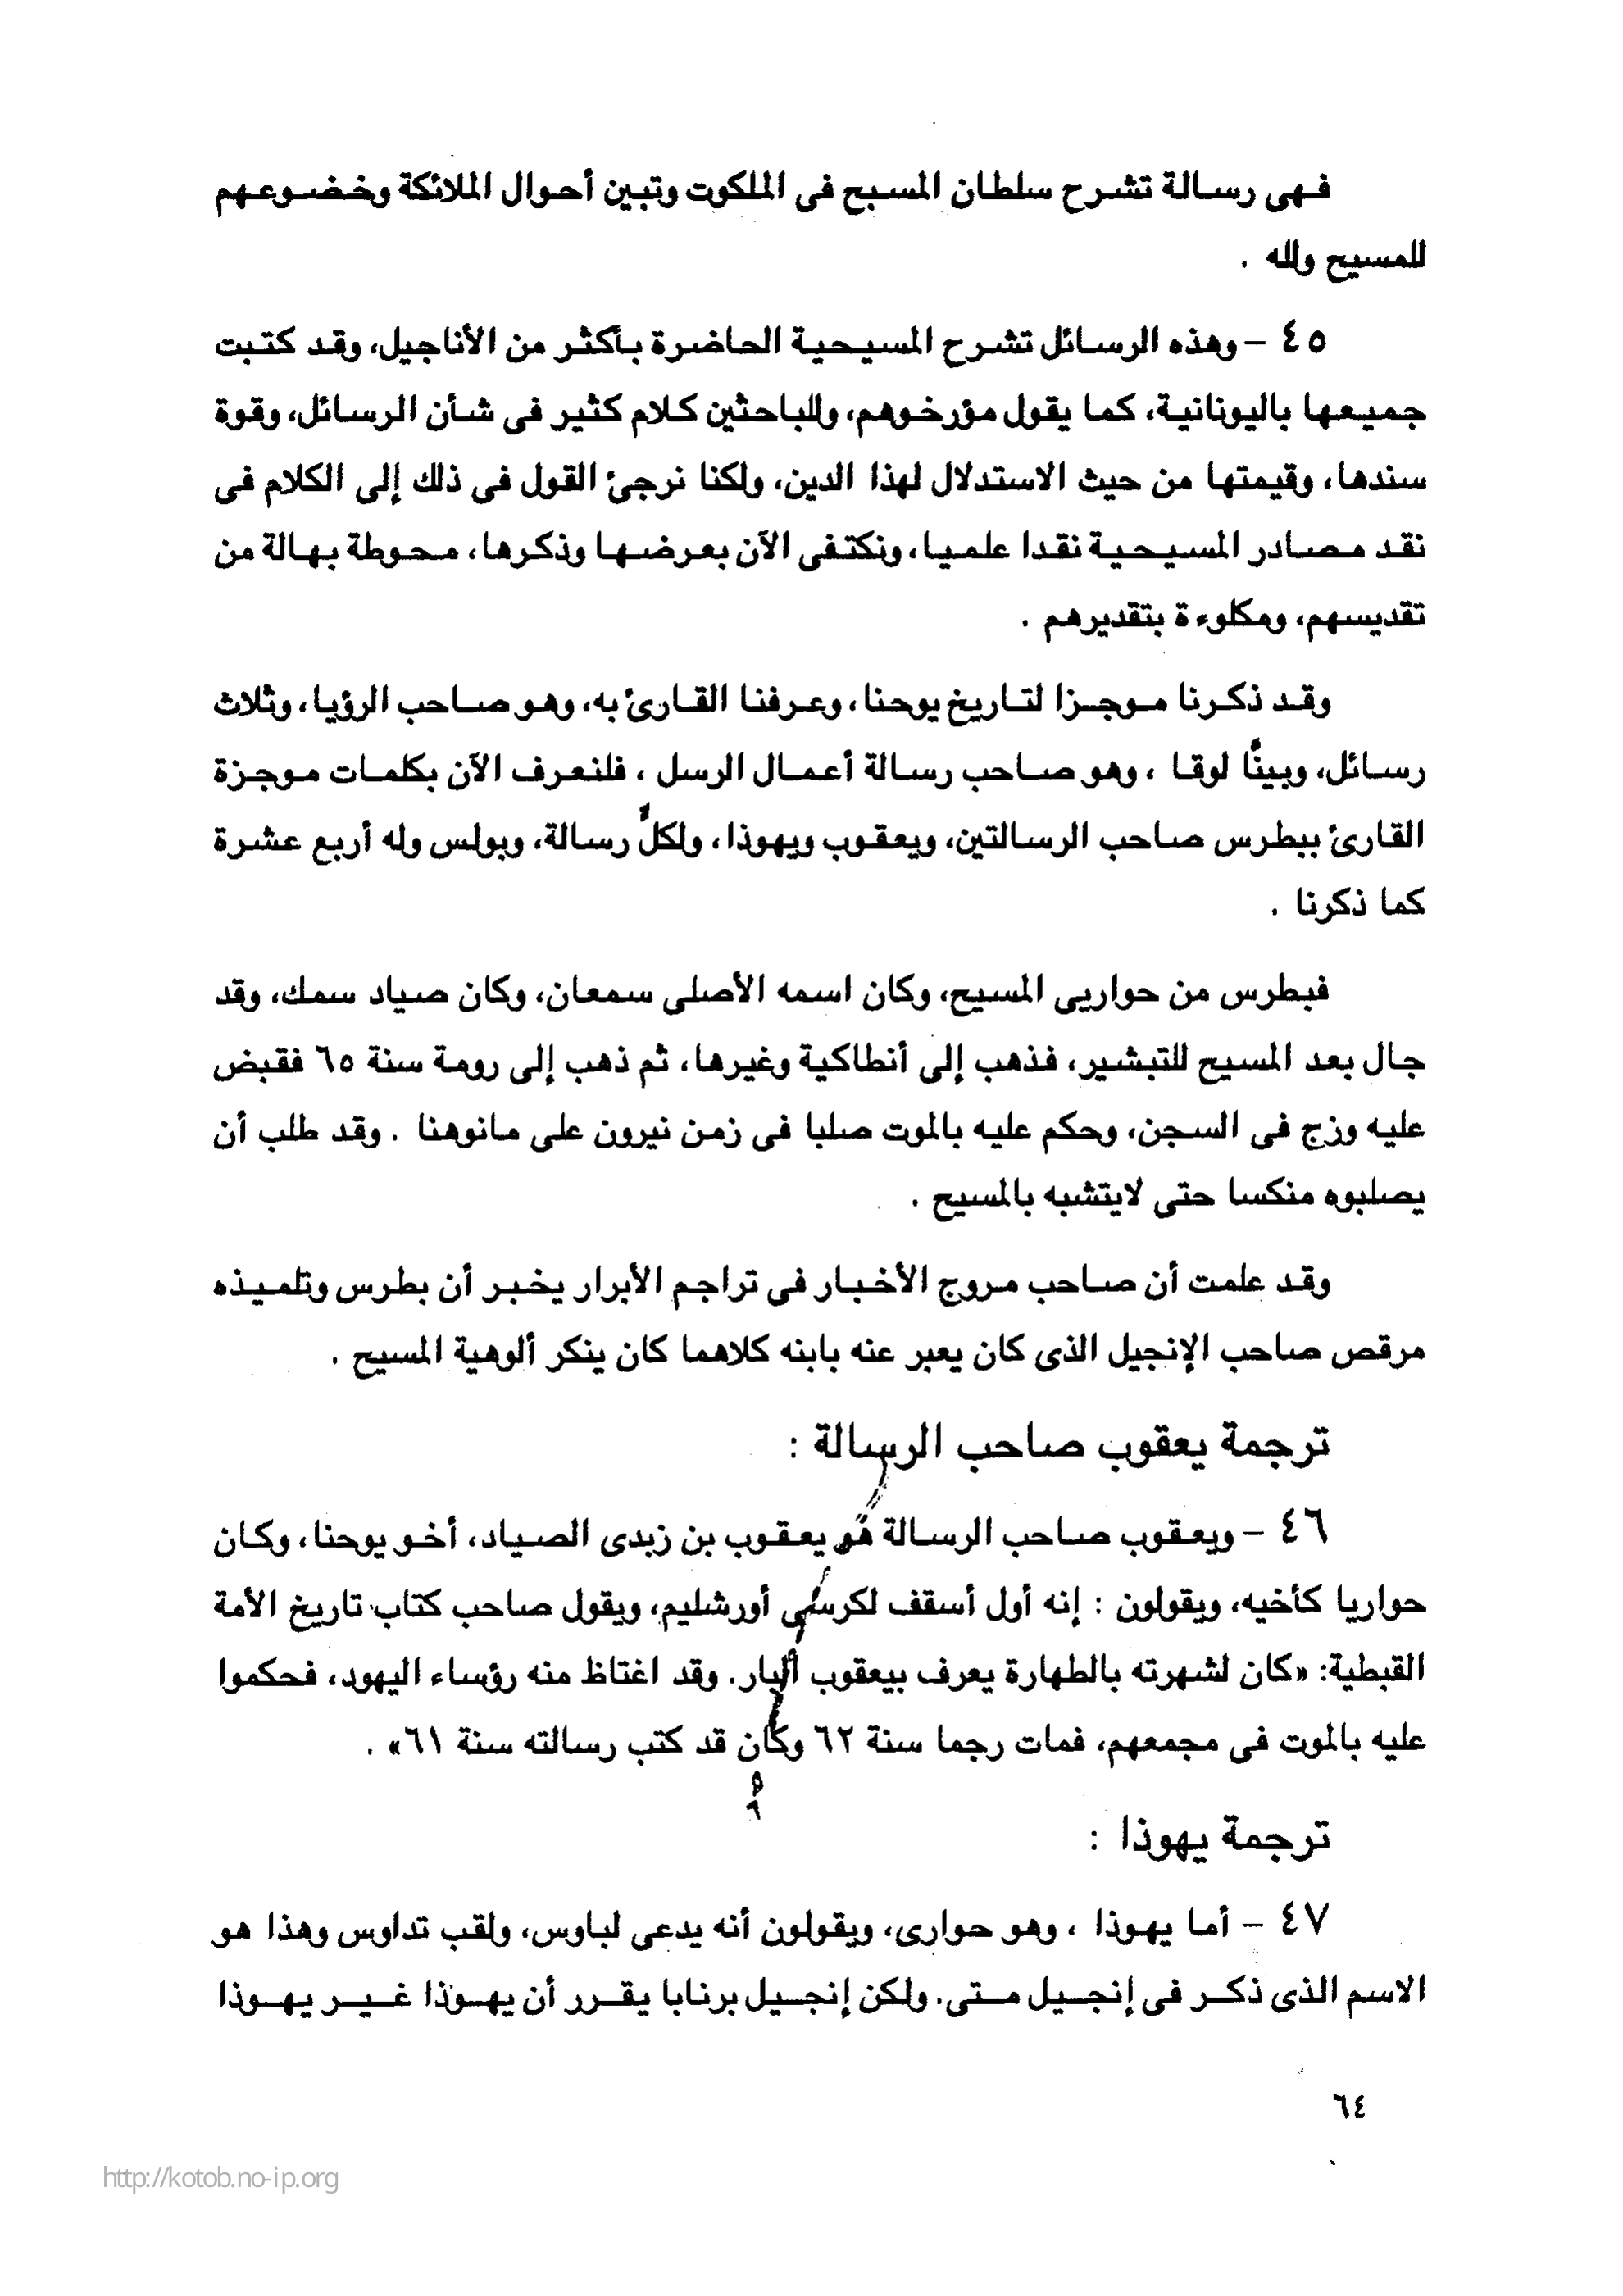 فهى رسالة تشرح سلطان المسيح فى الملكوت وتبين أحوال الملائكة وخضوعهم
للمسيح ولله .
٤٥ – وهذه الرسائل تشرح المسيحية الحاضرة بأكثر من الأناجيل، وقد كتبت
جميعها باليونانية، كما يقول مؤرخوهم، وللباحثين كلام كثير فى شأن الرسائل، وقوة
سندها، وقيمتها من حيث الاستدلال لهذا الدين، ولكنا نرجئ القول فى ذلك إلى الكلام فى
نقد مصادر المسيحية نقدا علميا، ونكتفى الآن بعرضها وذكرها، محوطة بهالة من
تقديسهم، ومكلوءة بتقديرهم .
وقد ذكرنا موجزا لتاريخ يوحنا، وعرفنا القارئ به، وهو صاحب الرؤيا، وثلاث
رسائل، وبينًّا لوقا ، وهو صاحب رسالة أعمال الرسل ، فلنعرف الآن بكلمات موجزة
القارئ ببطرس صاحب الرسالتين، ويعقوب ويهوذا، ولكلٍّ رسالة، وبولس وله أربع عشرة
كما ذكرنا .
فبطرس من حواريى المسيح، وكان اسمه الأصلى سمعان، وكان صياد سمك، وقد
جال بعد المسيح للتبشير، فذهب إلى أنطاكية وغيرها، ثم ذهب إلى رومة سنة ٦٥ فقبض
عليه وزج فى السجن، وحكم عليه بالموت صلبا فى زمن نيرون على مانوهنا . وقد طلب أن
يصلبوه منكسا حتى لايتشبه بالمسيح .
وقد علمت أن صاحب مروج الأخبار فى تراجم الأبرار يخبر أن بطرس وتلميذه
مرقص صاحب الإنجيل الذى كان يعبر عنه بابنه كلاهما كان ينكر ألوهية المسيح .
ترجمة يعقوب صاحب الرسالة :
٤٦ – ويعقوب صاحب الرسالة هو يعقوب بن زبدى الصياد، أخو يوحنا، وكان
حواريا كأخيه، ويقولون : إنه أول أسقف لكرسى أورشليم، ويقول صاحب كتاب تاريخ الأمة
القبطية: «كان لشهرته بالطهارة يعرف بيعقوب البار. وقد اغتاظ منه رؤساء اليهود، فحكموا
عليه بالموت فى مجمعهم، فمات رجما سنة ٦٢ وكان قد كتب رسالته سنة ٦١» .
ترجمة يهوذا :
٤٧ – أما يهوذا ، وهو حوارى، ويقولون أنه يدعى لباوس، ولقب تداوس وهذا هو
الاسم الذى ذكر فى إنجيل متى. ولكن إنجيل برنابا يقرر أن يهوذا غير يهوذا
٦٤
http://kotob.no-ip.org